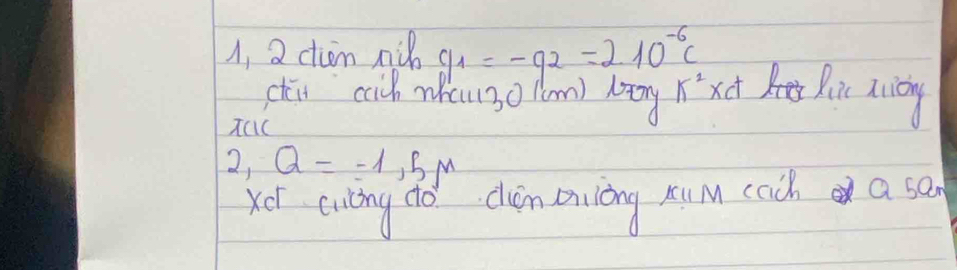 1, 2 điện tích q1 = -q2 = 2 10⁻⁶C
đặt cách nhau 30 (cm) trong K² xđ lực tương
tác
2, Q = -1,5 μ
xđ cường độ điện trường tại M cách Q 5cm